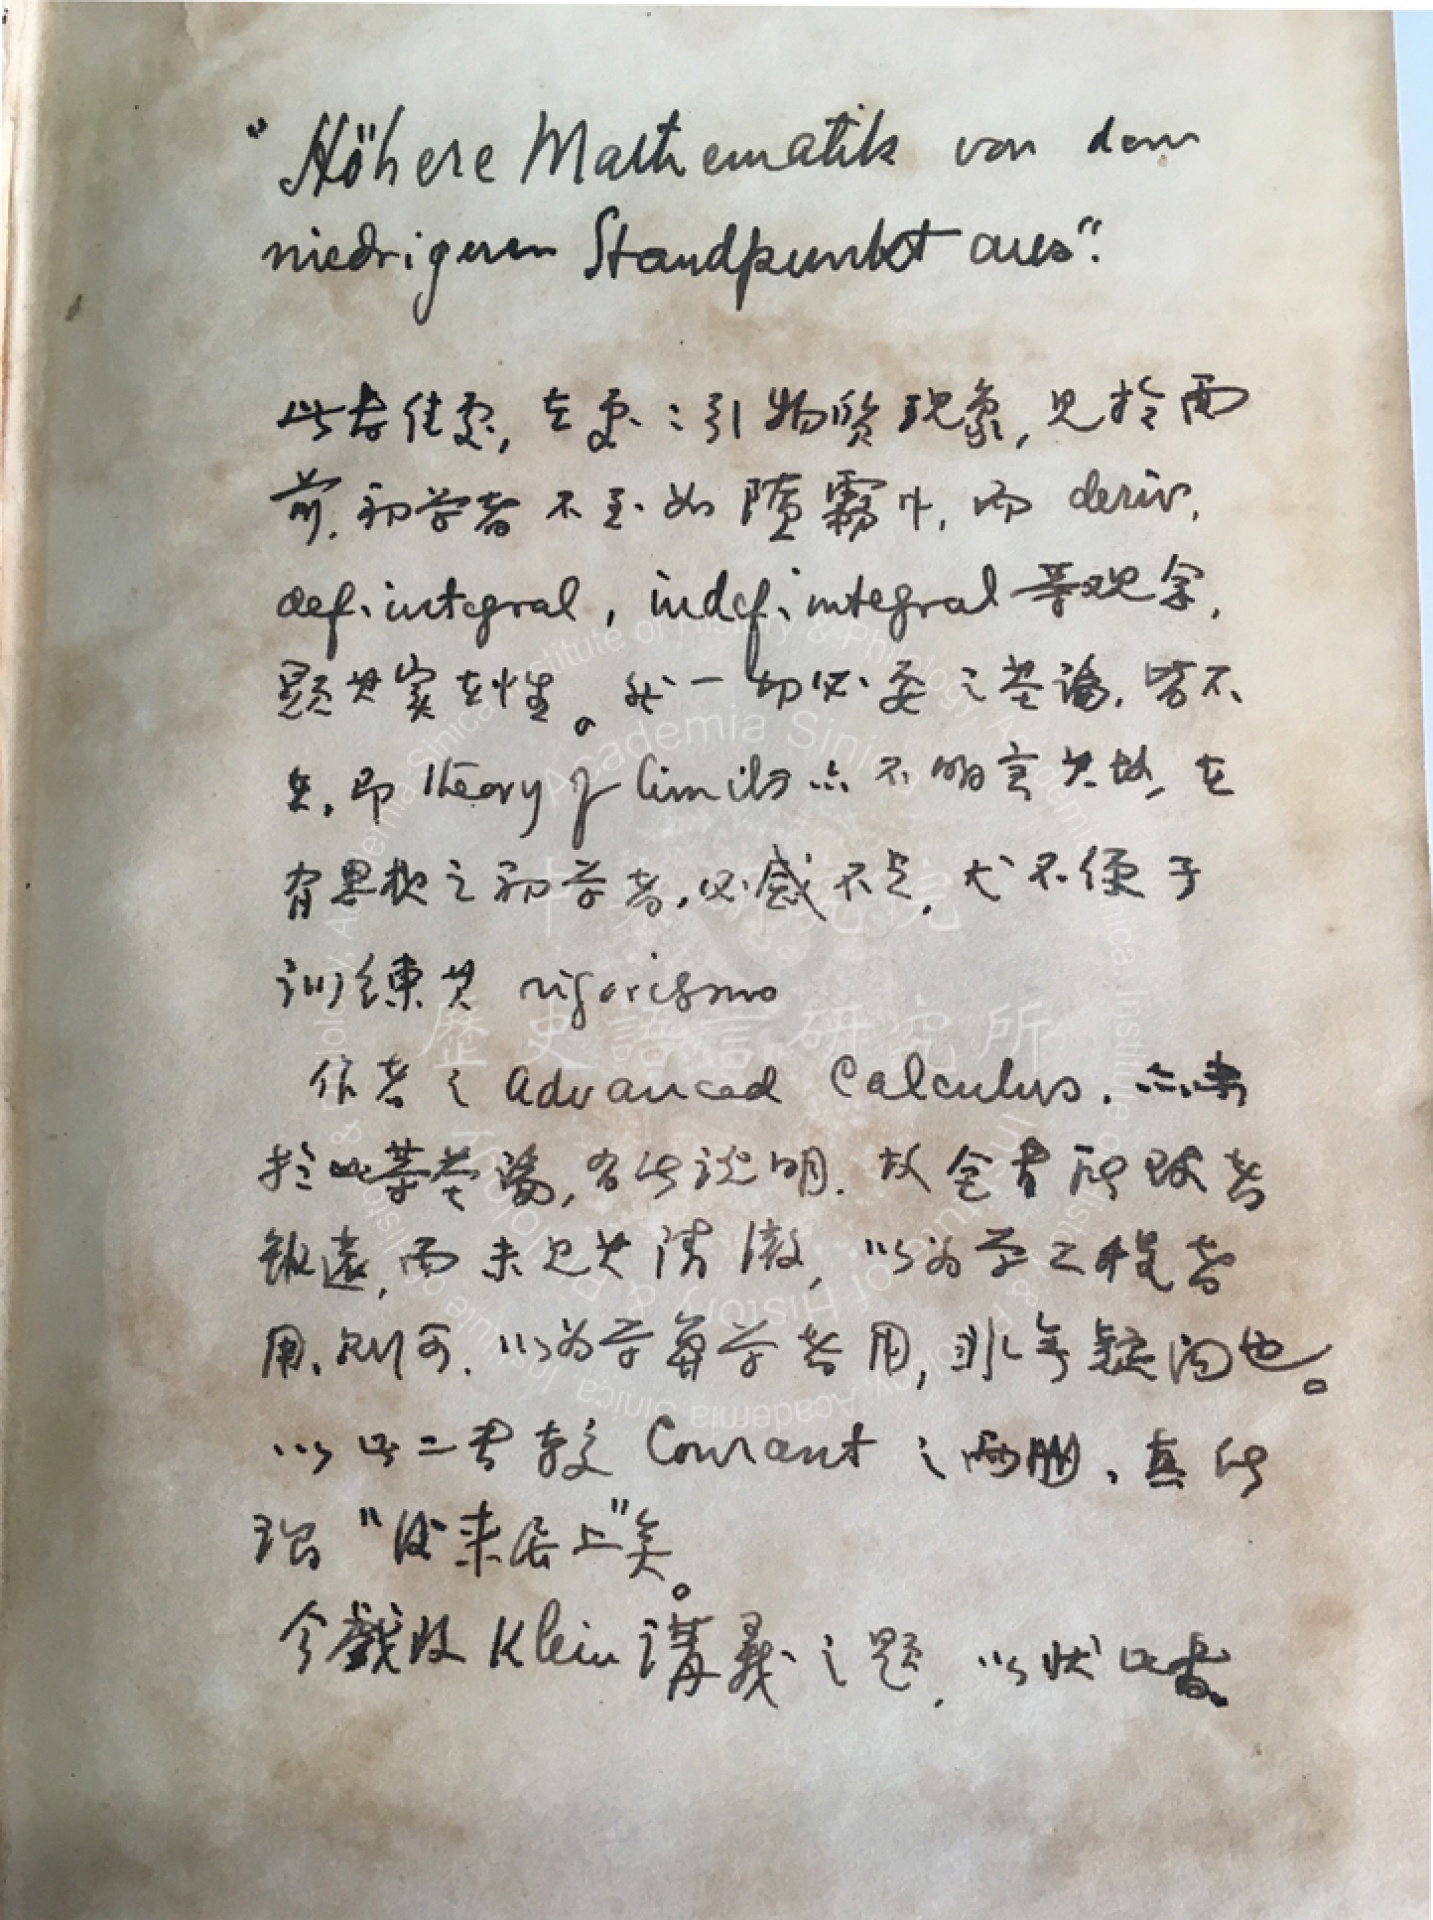 "Höhere Mathematik von dem
niedrigeren Standpunkt aus".
此書佳處,在處處引物質現象,見於面
前,初學者不至如墮霧中,而 deriv.
def. integral, indef. integral 等觀念,
顯其實在性。然一切必要之基論,皆不
具,即 theory of limits 亦不明言其故,在
有思想之初學者,必感不足,尤不便于
訓練其 rigorismo
作者之 Advanced Calculus,亦
於此等基論,有所說明。故全書所缺者
銳遠,而未見其清澈,以為學工程者
用,則可,以為學算學者用,非無疑問也。
以此二書較 Courant 之兩冊,真所
謂"後來居上"矣。
今戲改 Klein 講義之題,以狀此書。
中央研究院
歷史語言研究所
Institute of History & Philology, Academia Sinica